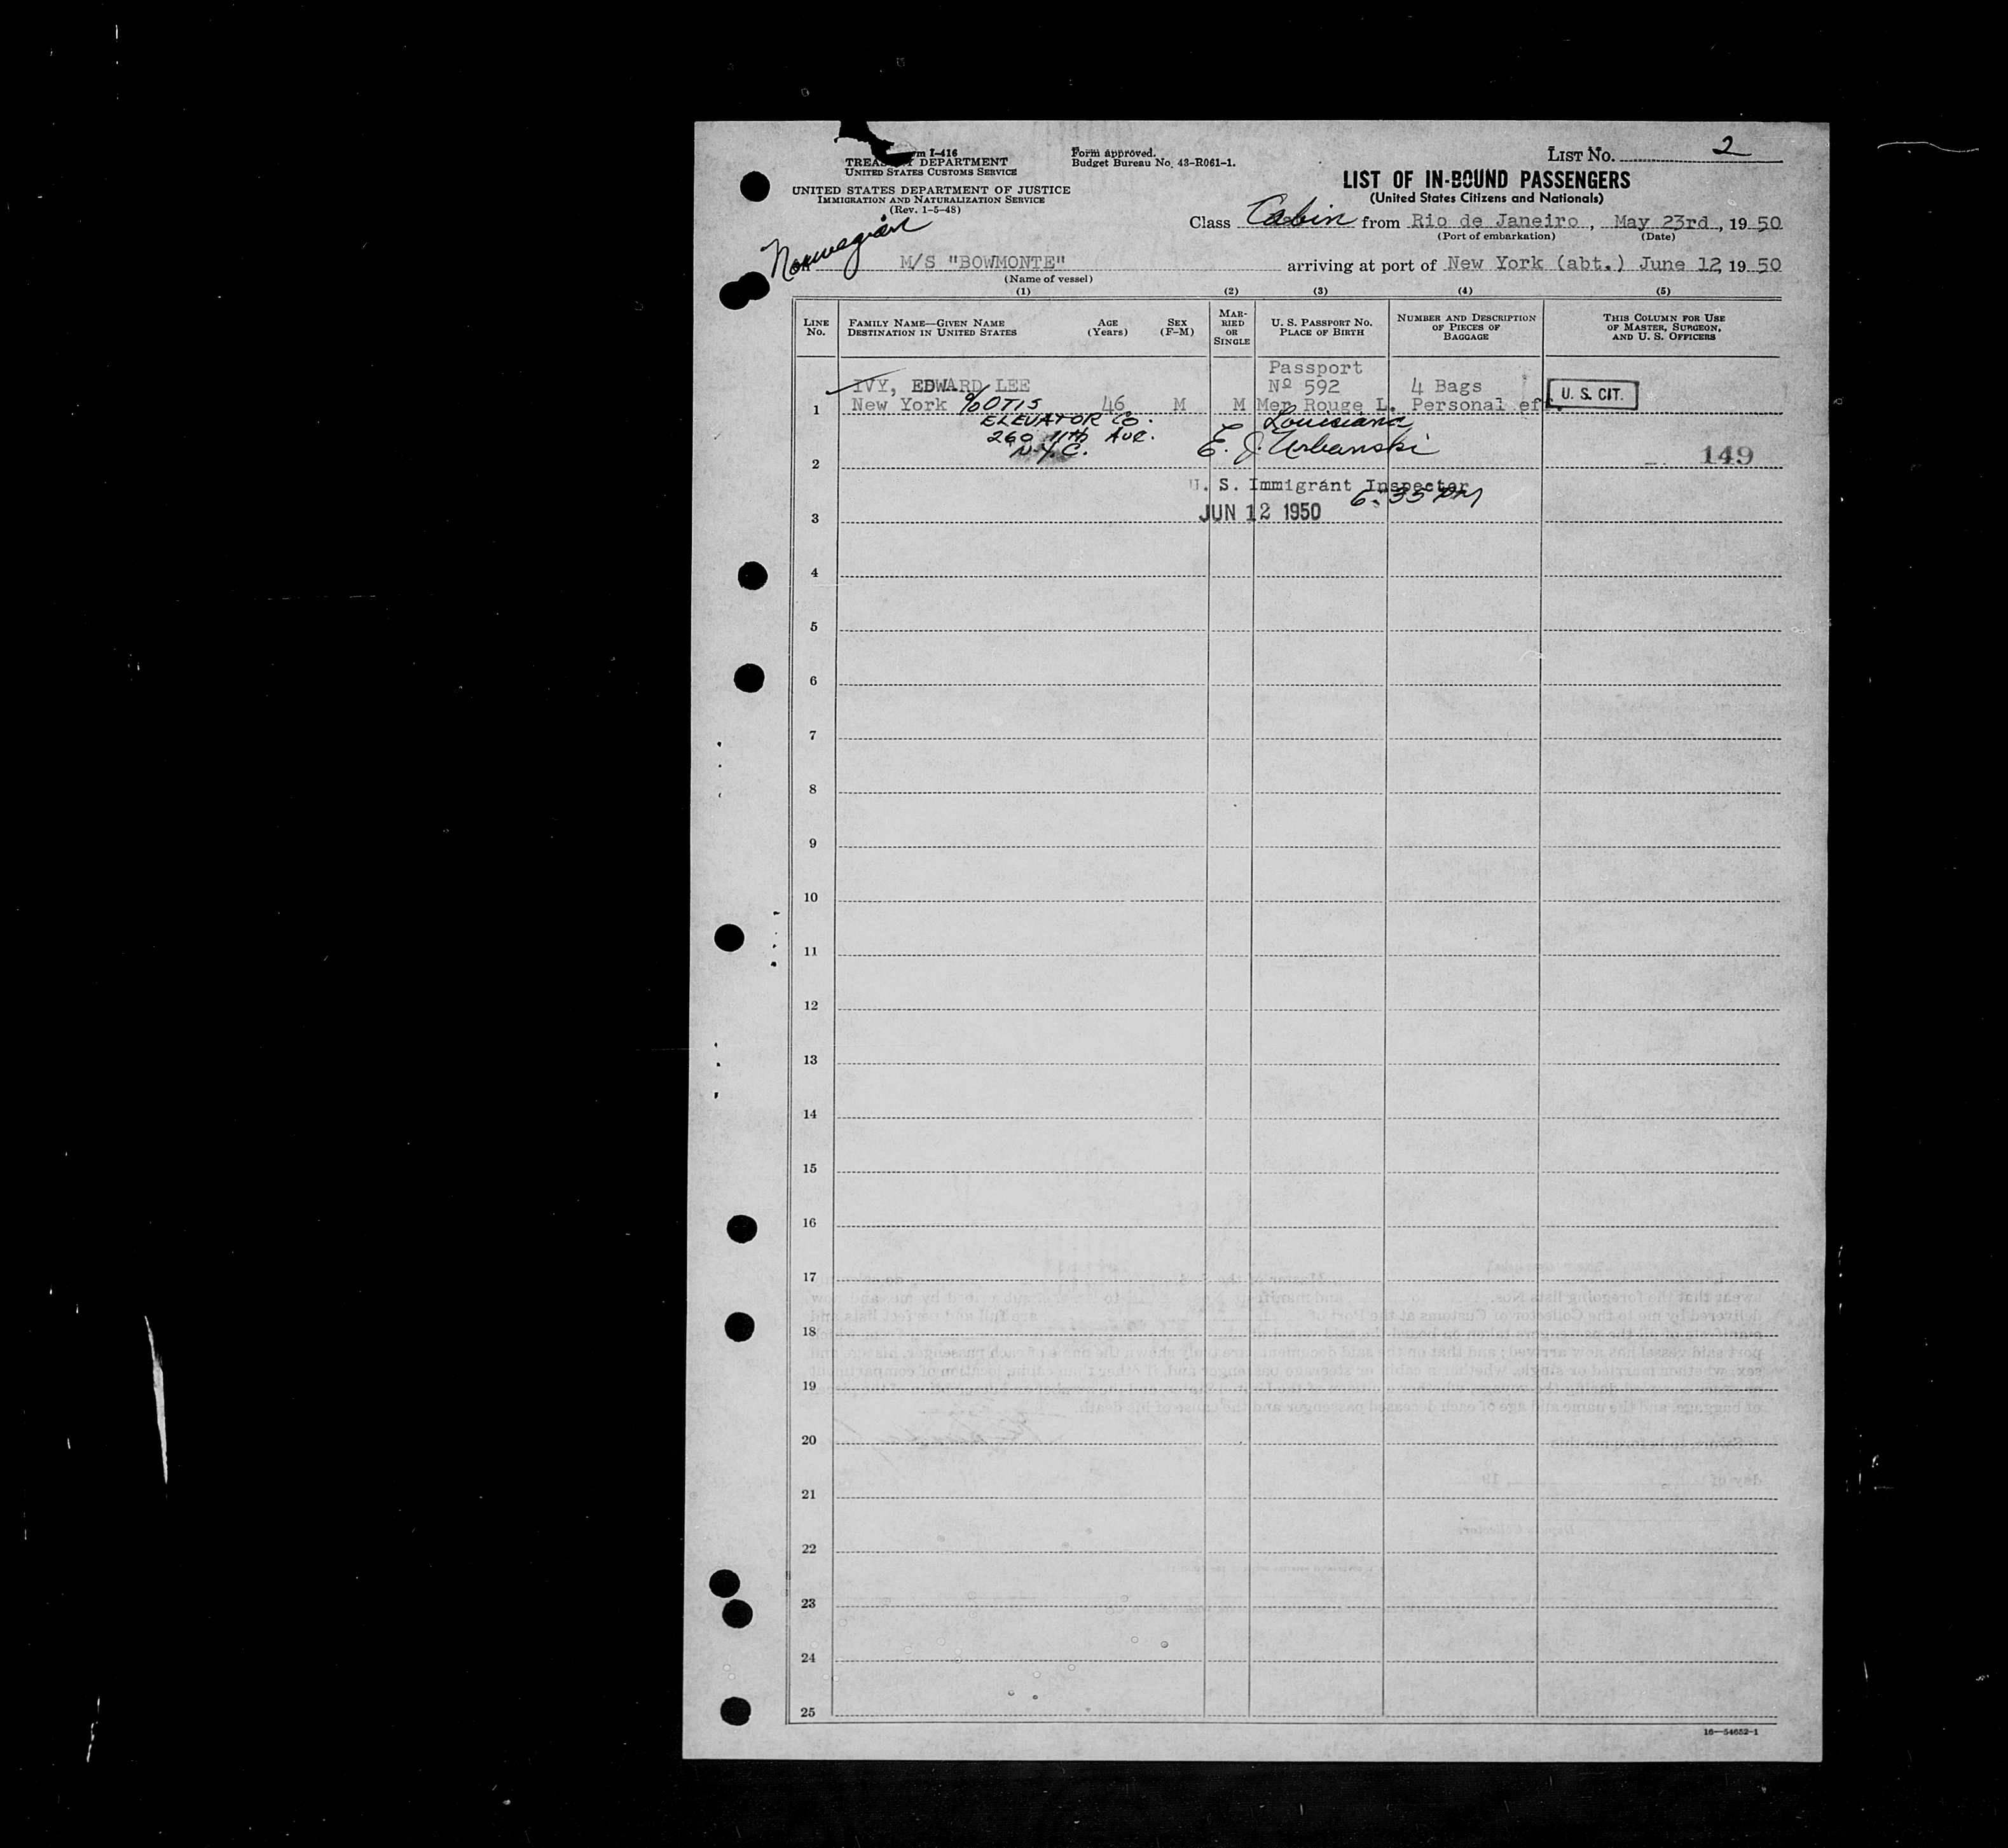 m I-416
TREASURY DEPARTMENT
UNITED STATES CUSTOMS SERVICE
UNITED STATES DEPARTMENT OF JUSTICE
IMMIGRATION AND NATURALIZATION SERVICE
(Rev. 1-5-48)
Form approved.
Budget Bureau No. 43-R061-1.
LIST No. 2
LIST OF IN-BOUND PASSENGERS
(United States Citizens and Nationals)
Class Cabin from Rio de Janeiro, May 23rd, 19 50
(Port of embarkation) (Date)
Norwegian
M/S "BOWMONTE" arriving at port of New York (abt.) June 12 19 50
(Name of vessel)
(1) (2) (3) (4) (5)
LINE No.
FAMILY NAME—GIVEN NAME
DESTINATION IN UNITED STATES
AGE (Years)
SEX (F-M)
MARRIED OR SINGLE
U. S. PASSPORT No.
PLACE OF BIRTH
NUMBER AND DESCRIPTION OF PIECES OF BAGGAGE
THIS COLUMN FOR USE OF MASTER, SURGEON, AND U. S. OFFICERS
Passport
IVY, EDWARD LEE Nº 592 4 Bags U. S. CIT.
1 New York % OTIS 46 M M Mer Rouge L. Personal ef
ELEVATOR Co. Louisiana
260 11th AVE. E. J. Urbanski
N.Y.C.
2 149
U. S. Immigrant Inspector
6:35 PM
3 JUN 12 1950
4
5
6
7
8
9
10
11
12
13
14
15
16
17
18
19
20
21
22
23
24
25
16—54652-1